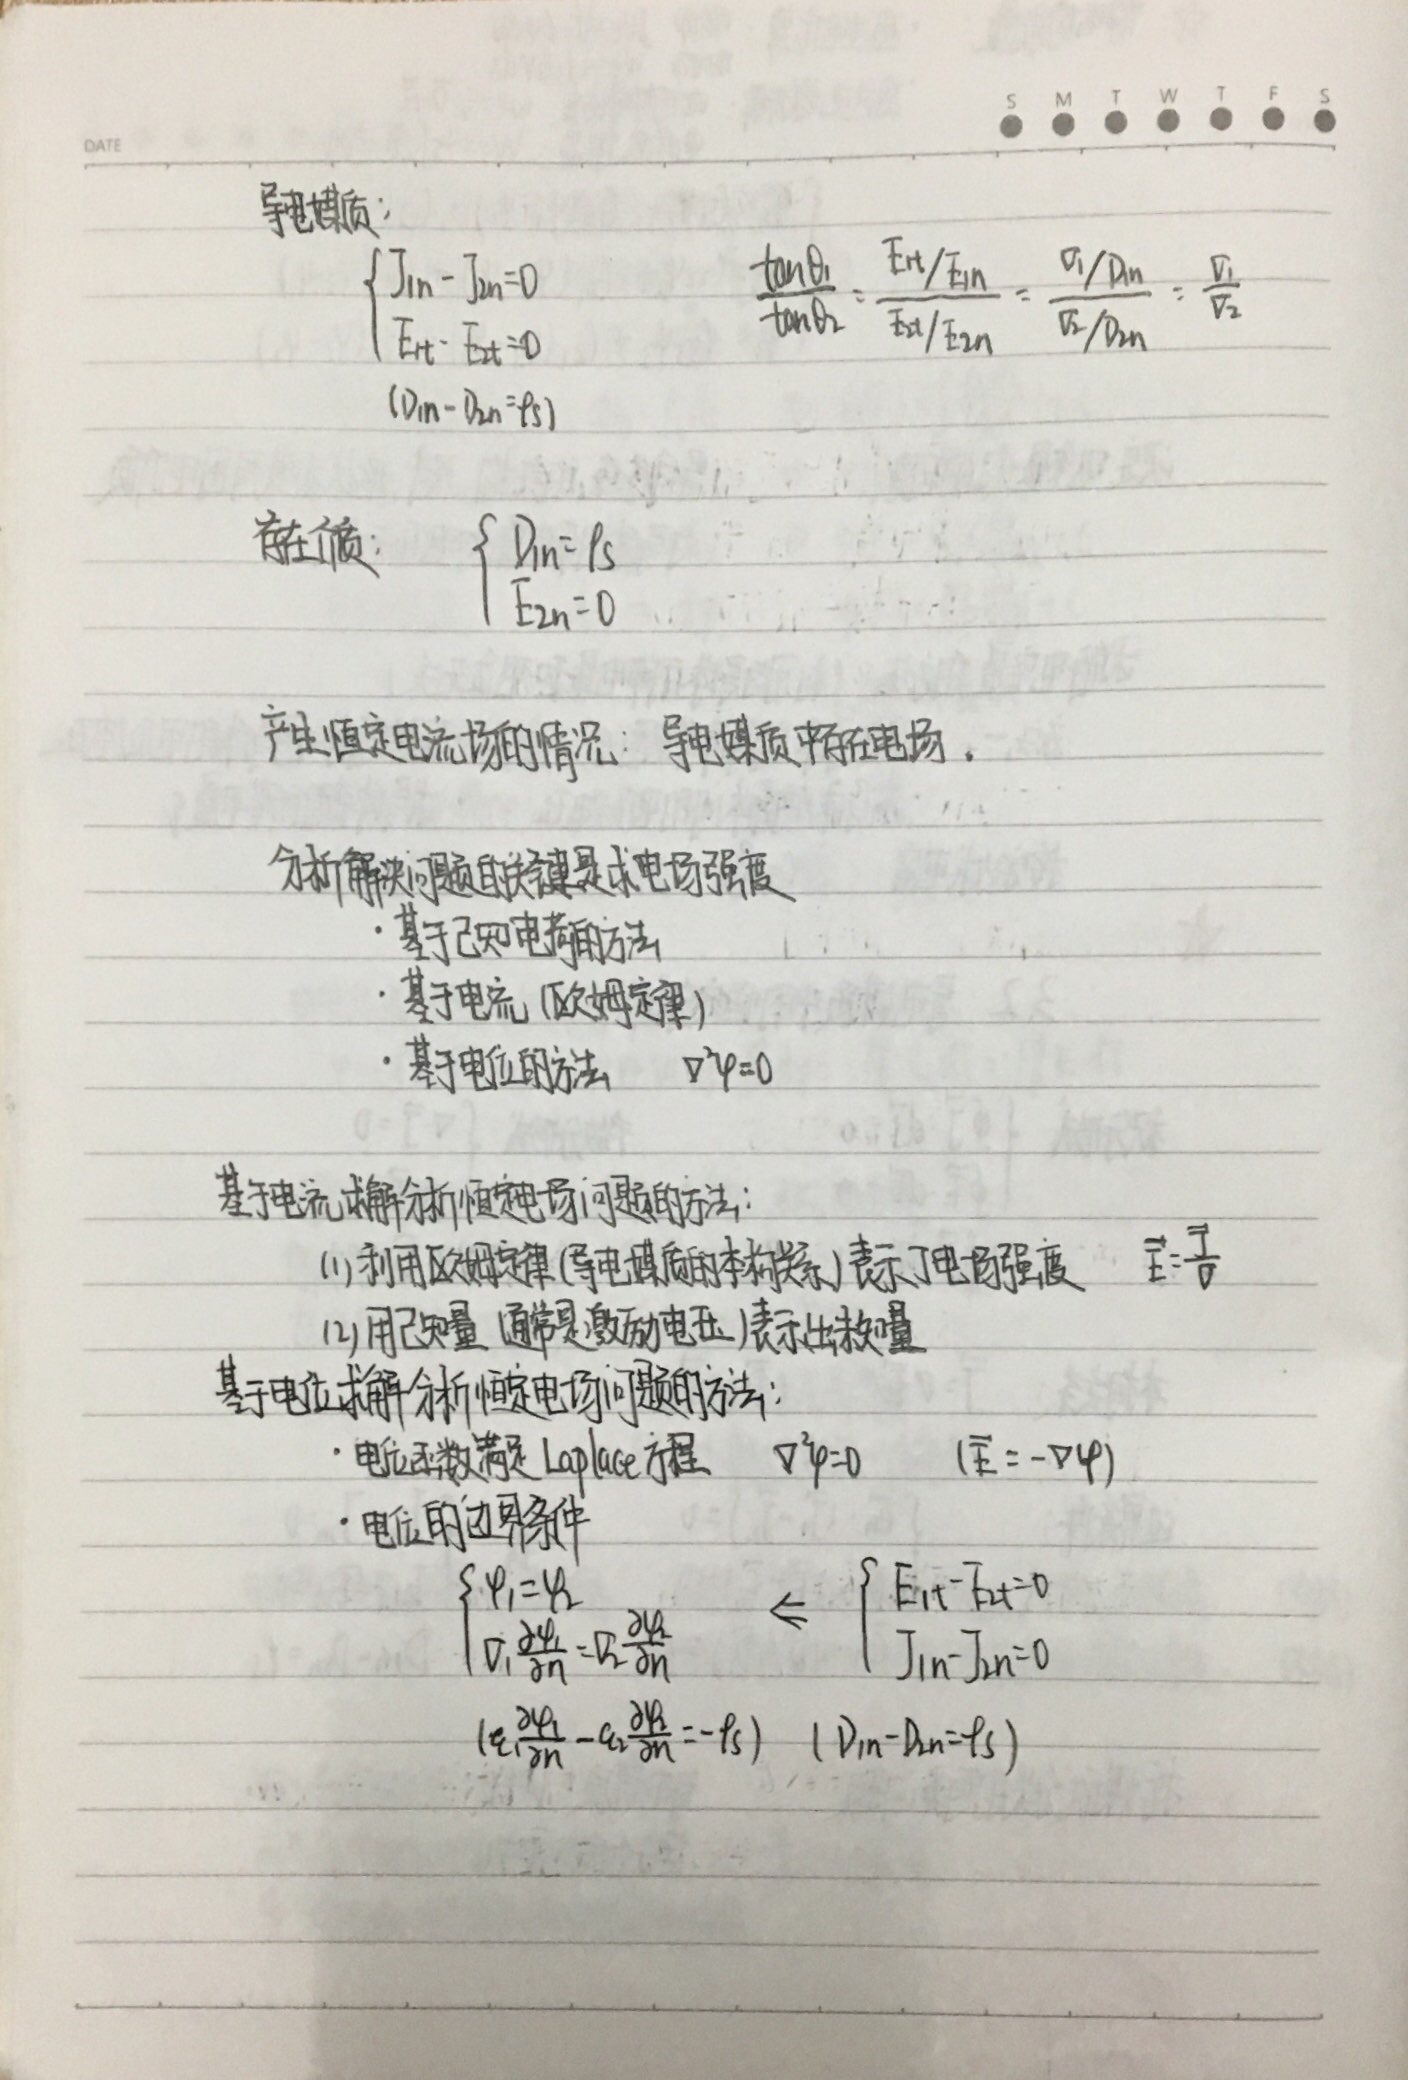 S M T W T F S
DATE
导电媒质:
{ J1n - J2n = 0
E1t - E2t = 0
tanθ1/tanθ2 = (E1t/E1n)/(E2t/E2n) = (σ1/D1n)/(σ2/D2n) = σ1/σ2
(D1n - D2n = ρs)
存在介质: { D1n = ρs
E2n = 0
产生恒定电流场的情况: 导电媒质中存在电场.
分析解决问题的关键是求电场强度
· 基于已知电荷的方法
· 基于电流 (欧姆定律)
· 基于电位的方法 ∇²φ=0
基于电流求解分析恒定电场问题的方法:
(1) 利用欧姆定律(导电媒质的本构关系)表示了电场强度 E⃗ = J⃗/σ
(2) 用已知量 (通常是激励电压)表示出未知量
基于电位求解分析恒定电场问题的方法:
· 电位函数满足 Laplace 方程 ∇²φ=0 (E⃗ = -∇φ)
· 电位的边界条件
{ φ1 = φ2 ⇐ { E1t - E2t = 0
σ1 ∂φ1/∂n = σ2 ∂φ2/∂n J1n - J2n = 0
(ε1 ∂φ1/∂n - ε2 ∂φ2/∂n = -ρs) (D1n - D2n = ρs)